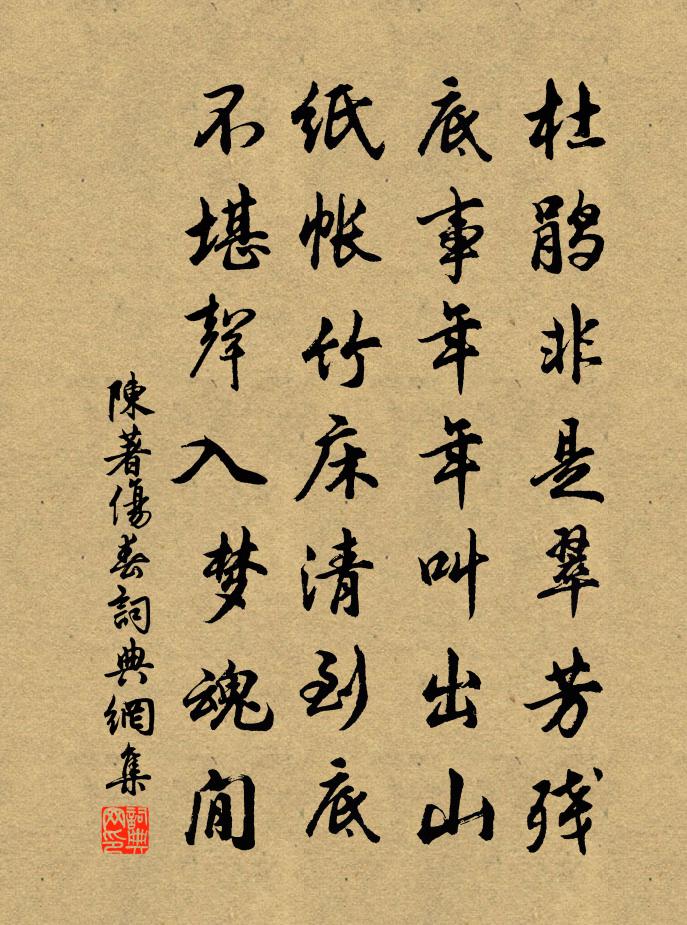 杜鹃非是翠芳残
底事年年叫出山
紙帳竹床清到底
不堪聲入梦魂间
陳著傷春詞典網集
詞典网印